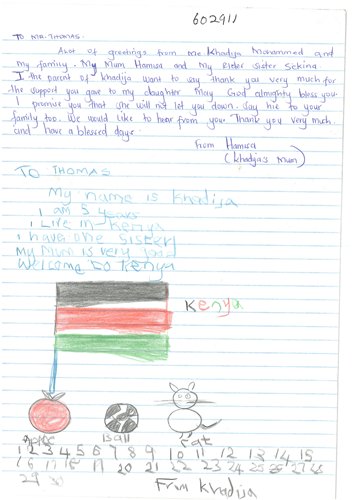 602911
TO MR. THOMAS.
Alot of greetings from me Khadija Mohammed and
my family. My Mum Hamisa and My Elder sister Sekina
I the parent of khadija want to say thank you very much for
the support you gave to my daughter May God almighty bless you.
I promise you that she will not let you down. Say hie to your
family too. We would like to hear from you. Thank you very much
and have a blessed days.
From Hamisa
(khadija's Mum)
TO THOMAS
My name is khadija
i am 5 years
i Live in Kenya
i have one Sister
My Mum is very
Welcome to Kenya
Kenya
apple ball cat
1 2 3 4 5 6 7 8 9 10 11 12 13 14 15
16 17 18 19 20 21 22 23 24 25 26 27 28
29 30
From khadija